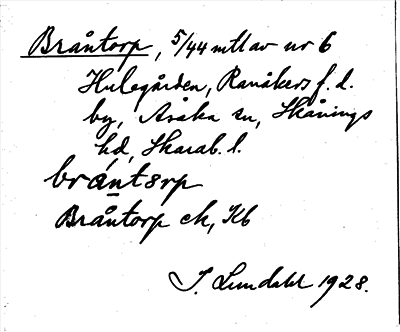 Bråntorp, 5/44 mtl av nr 6
Hulegården, Ranåkers f. d.
by, Asåka sn, Skånings
hd, Skarab. l.
bråntorp
Bråntorp ek, Kb
I. Lundahl 1928.